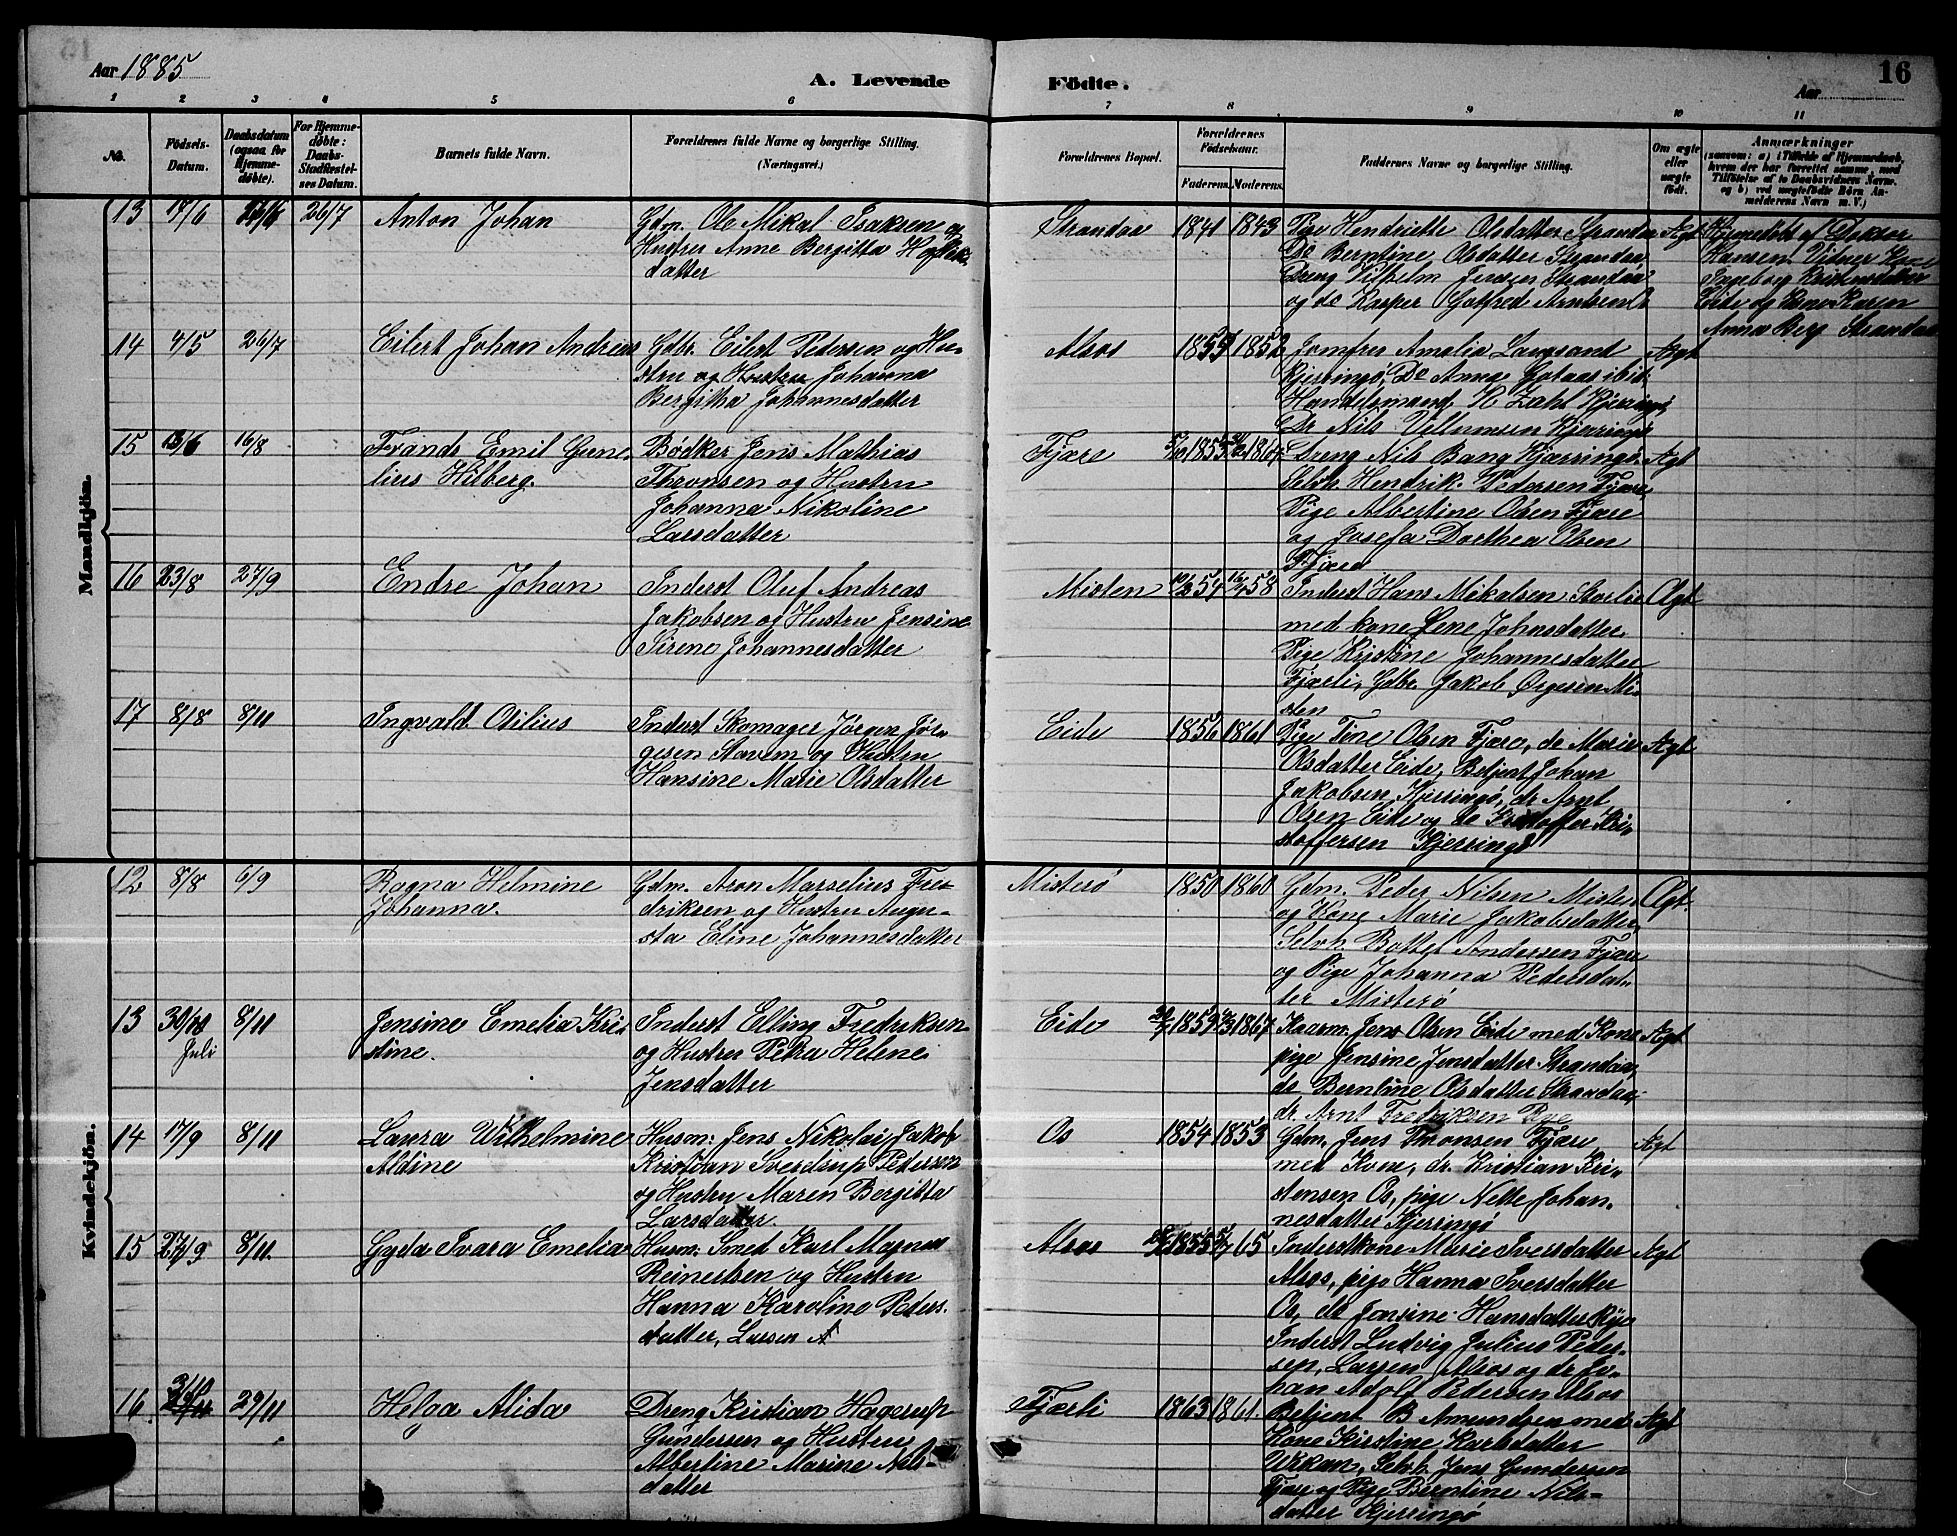 Aar 1885
A. Levende Födte.
16
Aar
1 2 3 4 5 6 7 8 9 10 11
No.
Födsels-Datum.
Daabsdatum (ogsaa for Hjemme-døbte).
For Hjemme-døbte: Daabs-Stadfæstel-ses Datum.
Barnets fulde Navn.
Forældrenes fulde Navne og borgerlige Stilling.
(Næringsvei.)
Forældrenes Bopæl.
Forældrenes Födselsaar.
Faderens. Moderens.
Faddernes Navne og borgerlige Stilling.
Om ægte eller uægte født.
Anmærkninger
(saasom: a) i Tilfælde af Hjemmedaab, hvem der har forrettet samme, med Tilföielse af to Daabsvidners Navne, og b) ved uægtefödte Börn An-melderens Navn m. V.)
Mandkjön.
13 17/6 26/7 Anton Johan
Gdm. Ole Mikal Isaksen og
Hustru Anne Bergitta
datter
Strandaa 1841 1843
Pige Hendriette Olsdatter Strandaa
Do Berntine Olsdatter Strandaa
Dreng Vilhelm Jensen Strandaa
og do Kasper Gotfred Arntsen do
Ægt
Hjemmedøbt af
Hansen Vidner
Ingeborg
Eide og
Anna Berg Strandaa
14 4/5 26/7 Eilert Johan Andreas
Gdbr. Eilert Pedersen og Hu-
stru og Hustru Johanna
Bergitha Johannesdatter
Alsos 1852
Jomfru Amalia Langsand
Kjerringø, Do Anna Gotaas ibid;
Handelsmand K Zahl Kjerringø
Do Nils Kjerringø
Ægt
15 13/6 16/8 Frands Emil Gune-
lius Hilberg.
Bødker Jens Mathias
Thronsen og Hustru
Johanna Nikoline
Larsdatter
Fjære
Dreng Nils Bang Kjærringø
Selvh. Hendrik Pedersen Fjære
Pige Albertine Olsen Fjære
og Josefa Dorthea Olsen
Fjære
Ægt
16 23/8 27/9 Endre Johan
Inderst Oluf Andreas
Jakobsen og Hustru Jensine
Sirene Johannesdatter
Misten
Inderst Hans Mikalsen Storlie
med kone Lene Johnsdatter
Pige Kjistine Johannesdatter
Fjærli, Gdbr. Jakob Ørgesen Mi-
sten
Ægt
17 8/8 8/11 Ingvald Osilius
Inderst Skomager Jørgen Jør-
gesen Stavem og Hustru
Hansine Marie Olsdatter
Eide 1856 1861
Pige Tine Olsen Fjære, do Marie
Olsdatter Eide, Betjent Johan
Jakobsen Kjerringø, do Arnt
Olsen Eide og do Kristoffer Kri-
stoffersen Kjerringø
Ægt
Kvindekjön.
12 8/8 6/9 Ragna Helmine
Johanna.
Gdm. Aron Marselius Fre-
driksen og Hustru Augu-
sta Eline Johannesdatter
Misterø 1850 1860
Gdm. Peder Nilsen Mister
og Kone Marie Jakobsdatter
Selvh. Andersen Fjære
og Pige Johanna Pedersdat-
ter Misterø
Ægt.
13 30/ Juli 8/11 Jensine Emelia Kri-
stine.
Inderst Elling Fredriksen
og Hustru Petra Helene
Jensdatter
Eide 1867
Kaarm. Jens Olsen Eide med Kone
pige Jensine Jensdatter Strandaa,
do Berntine Olsdatter Strandaa,
do. Arnt Fredriksen
Ægt
14 17/9 8/11 Laura Wilhelmine
Aldine
Husm: Jens Nikolai Jakob
Kristian Sverdrup Pedersen
og Hustru Maren Bergitta
Larsdatter.
Os 1854 1853
Gdm. Jens Tronsen Fjære
med Kone, dr. Kristian Kri-
stensen Os, pige Nette Johan-
nesdatter Kjerringø
Ægt
15 8/11. Gyda Ivara Emelia
Husm: Smed Karl Magnus
Reinertsen og Hustru
Hanna Karoline Peders-
datter, Larsen A
Alsos 1855 65
Inderstkone Marie Iversdatter
Alsos, pige Hanna Iversdatter
Os, do Jensine Hansdatter
Inderst Ludvig Julius Peder-
sen, Larsen Alsos og dr. Jo-
han Adolf Pedersen Alsos
Ægt
16. 3/10 29/11 Helga Alida
Dreng Kristian Hagerup
Gundersen og Hustru
Albertine Marine Nils-
datter
Fjærli 1863 1861.
Betjent B Amundsen med
Kone Kirstine Karlsdatter
Selvh. Jens Gundersen
Fjære og Pige Berntine Nils-
datter Kjerringø
Ægt